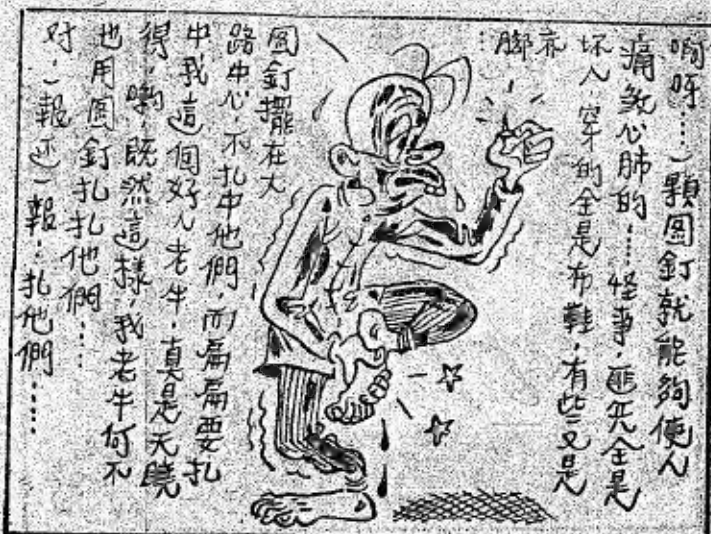 啊呀……一顆圖釘就能夠使人
痛煞心肺的……怪事，匪兵全是
坏人，穿的全是布鞋，有些又是
赤脚…
圖釘擺在大
路中心，不扎中他們，而偏偏要扎
中我這個好人老牛，真是天曉
得，喲，既然這樣，我老牛何不
也用圖釘扎扎他們……
对，一報还一報，扎他們……